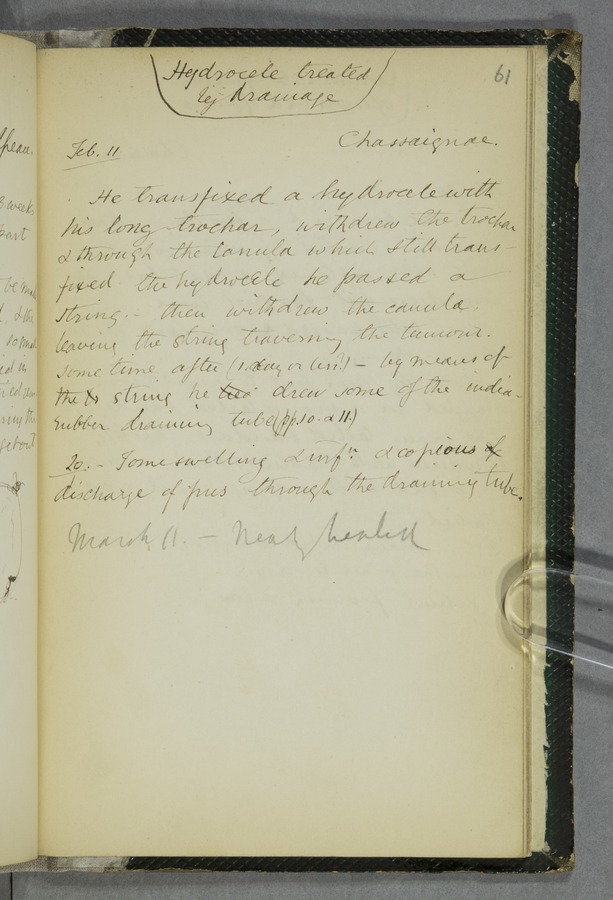 61
Hydrocele treated
by drainage
Chassaignac.
Feb. 11
He transfixed a hydrocele with
his long trochar, withdrew the trochar
& through the canula which still trans-
fixed the hydrocele he passed a
string - then withdrew the canula
leaving the string traversing the tumour.
some time after (1 day or less?) - by means of
the string he tied drew some of the india-
rubber draining tube (pp 10. & 11.)
20. - Some swelling & infn. & copious of
discharge of pus through the draining tube.
March 11. - Nearly healed